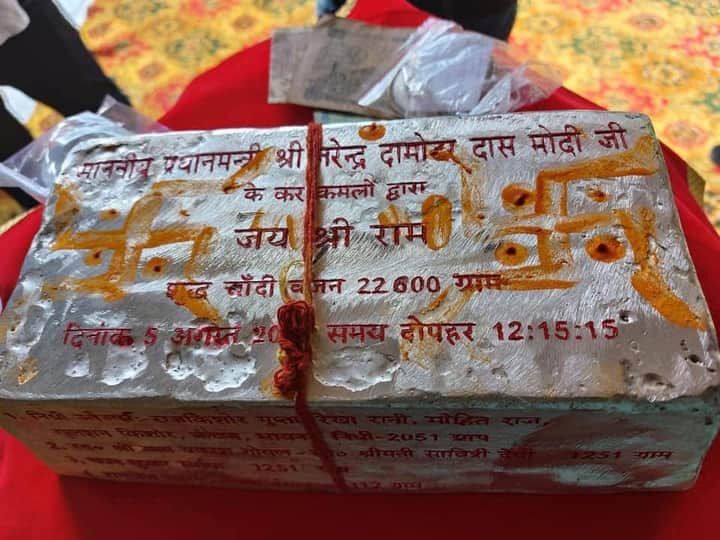 माननीय प्रधानमन्त्री श्री नरेन्द्र दामोदर दास मोदी जी
के कर कमलों द्वारा
जय श्री राम
शुद्ध चाँदी वजन 22600 ग्राम
दिनांक 5 अगस्त 20 समय दोपहर 12:15:15
1. राजकिशोर गुप्ता रेखा रानी, मोहित राज,
किशोर, निधी-2051 ग्राम
2. श्रीमती सावित्री देवी 1251 ग्राम
1251
112 ग्राम